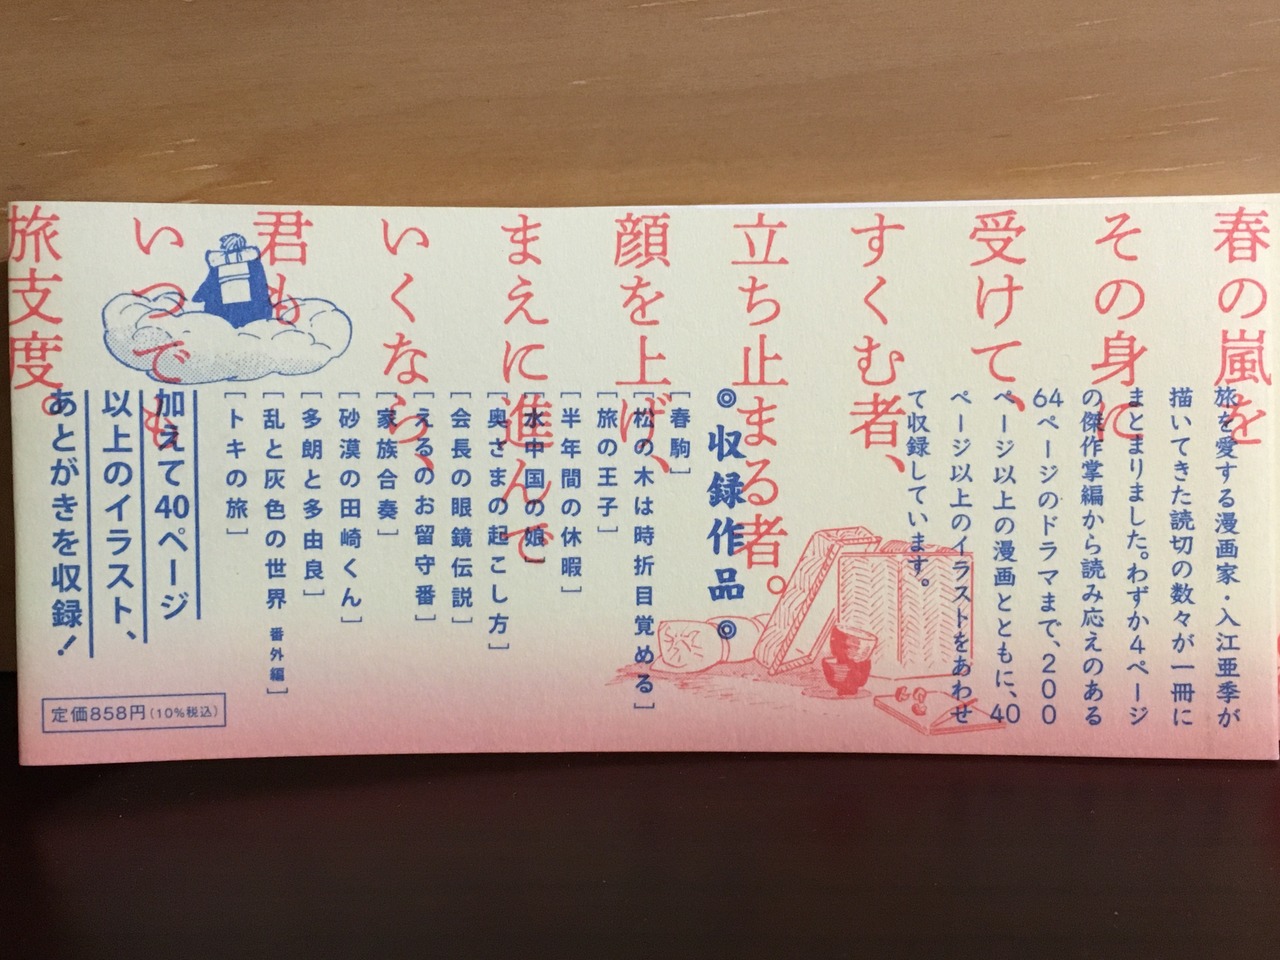 春の嵐を
その身に
受けて、
すくむ者、
立ち止まる者。
顔を上げ、
まえに進んで
いくなら、
君も
いつでも
旅支度。
旅を愛する漫画家・入江亜季が
描いてきた読切の数々が一冊に
まとまりました。わずか4ページ
の傑作掌編から読み応えのある
64ページのドラマまで、200
ページ以上の漫画とともに、40
ページ以上のイラストをあわせ
て収録しています。
◎収録作品◎
[春駒]
[松の木は時折目覚める]
[旅の王子]
[半年間の休暇]
[水中国の娘]
[奥さまの起こし方]
[会長の眼鏡伝説]
[えるのお留守番]
[家族合奏]
[砂漠の田崎くん]
[多朗と多由良]
[乱と灰色の世界 番外編]
[トキの旅]
加えて40ページ
以上のイラスト、
あとがきを収録!
定価858円(10%税込)